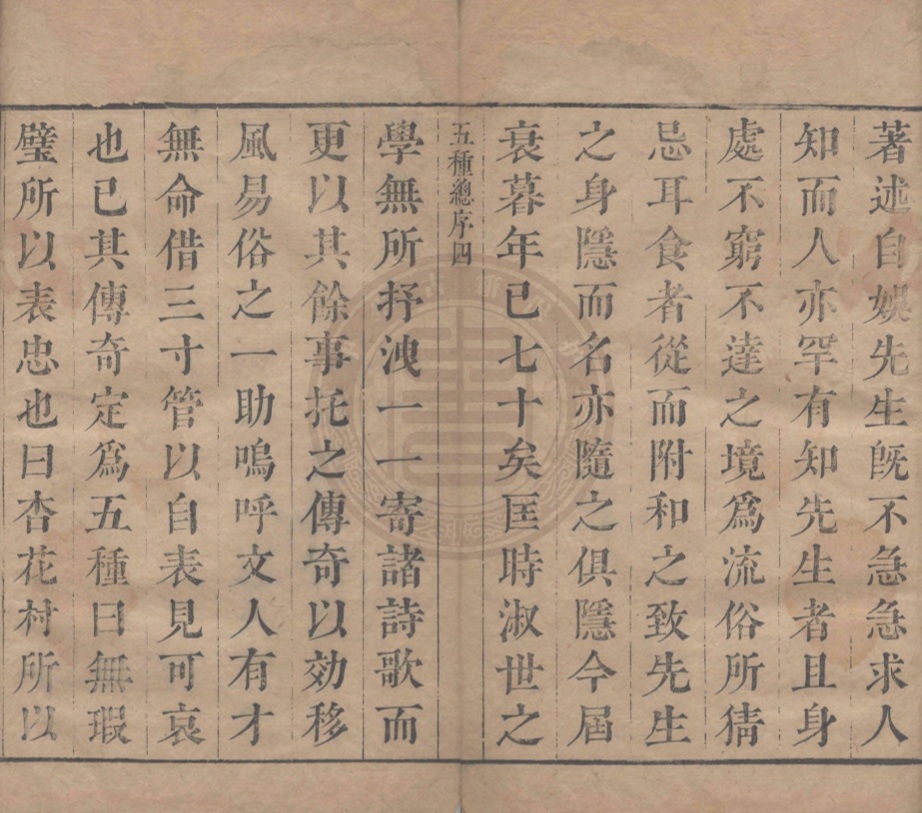 著述自娛先生既不急急求人
知而人亦罕有知先生者且身
處不窮不達之境爲流俗所猜
忌耳食者從而附和之致先生
之身隱而名亦隨之俱隱今屆
衰暮年已七十矣匡時淑世之
五種總序四
學無所抒洩一一寄諸詩歌而
更以其餘事托之傳奇以効移
風易俗之一助嗚呼文人有才
無命借三寸管以自表見可哀
也已其傳奇定爲五種曰無瑕
璧所以表忠也曰杏花村所以